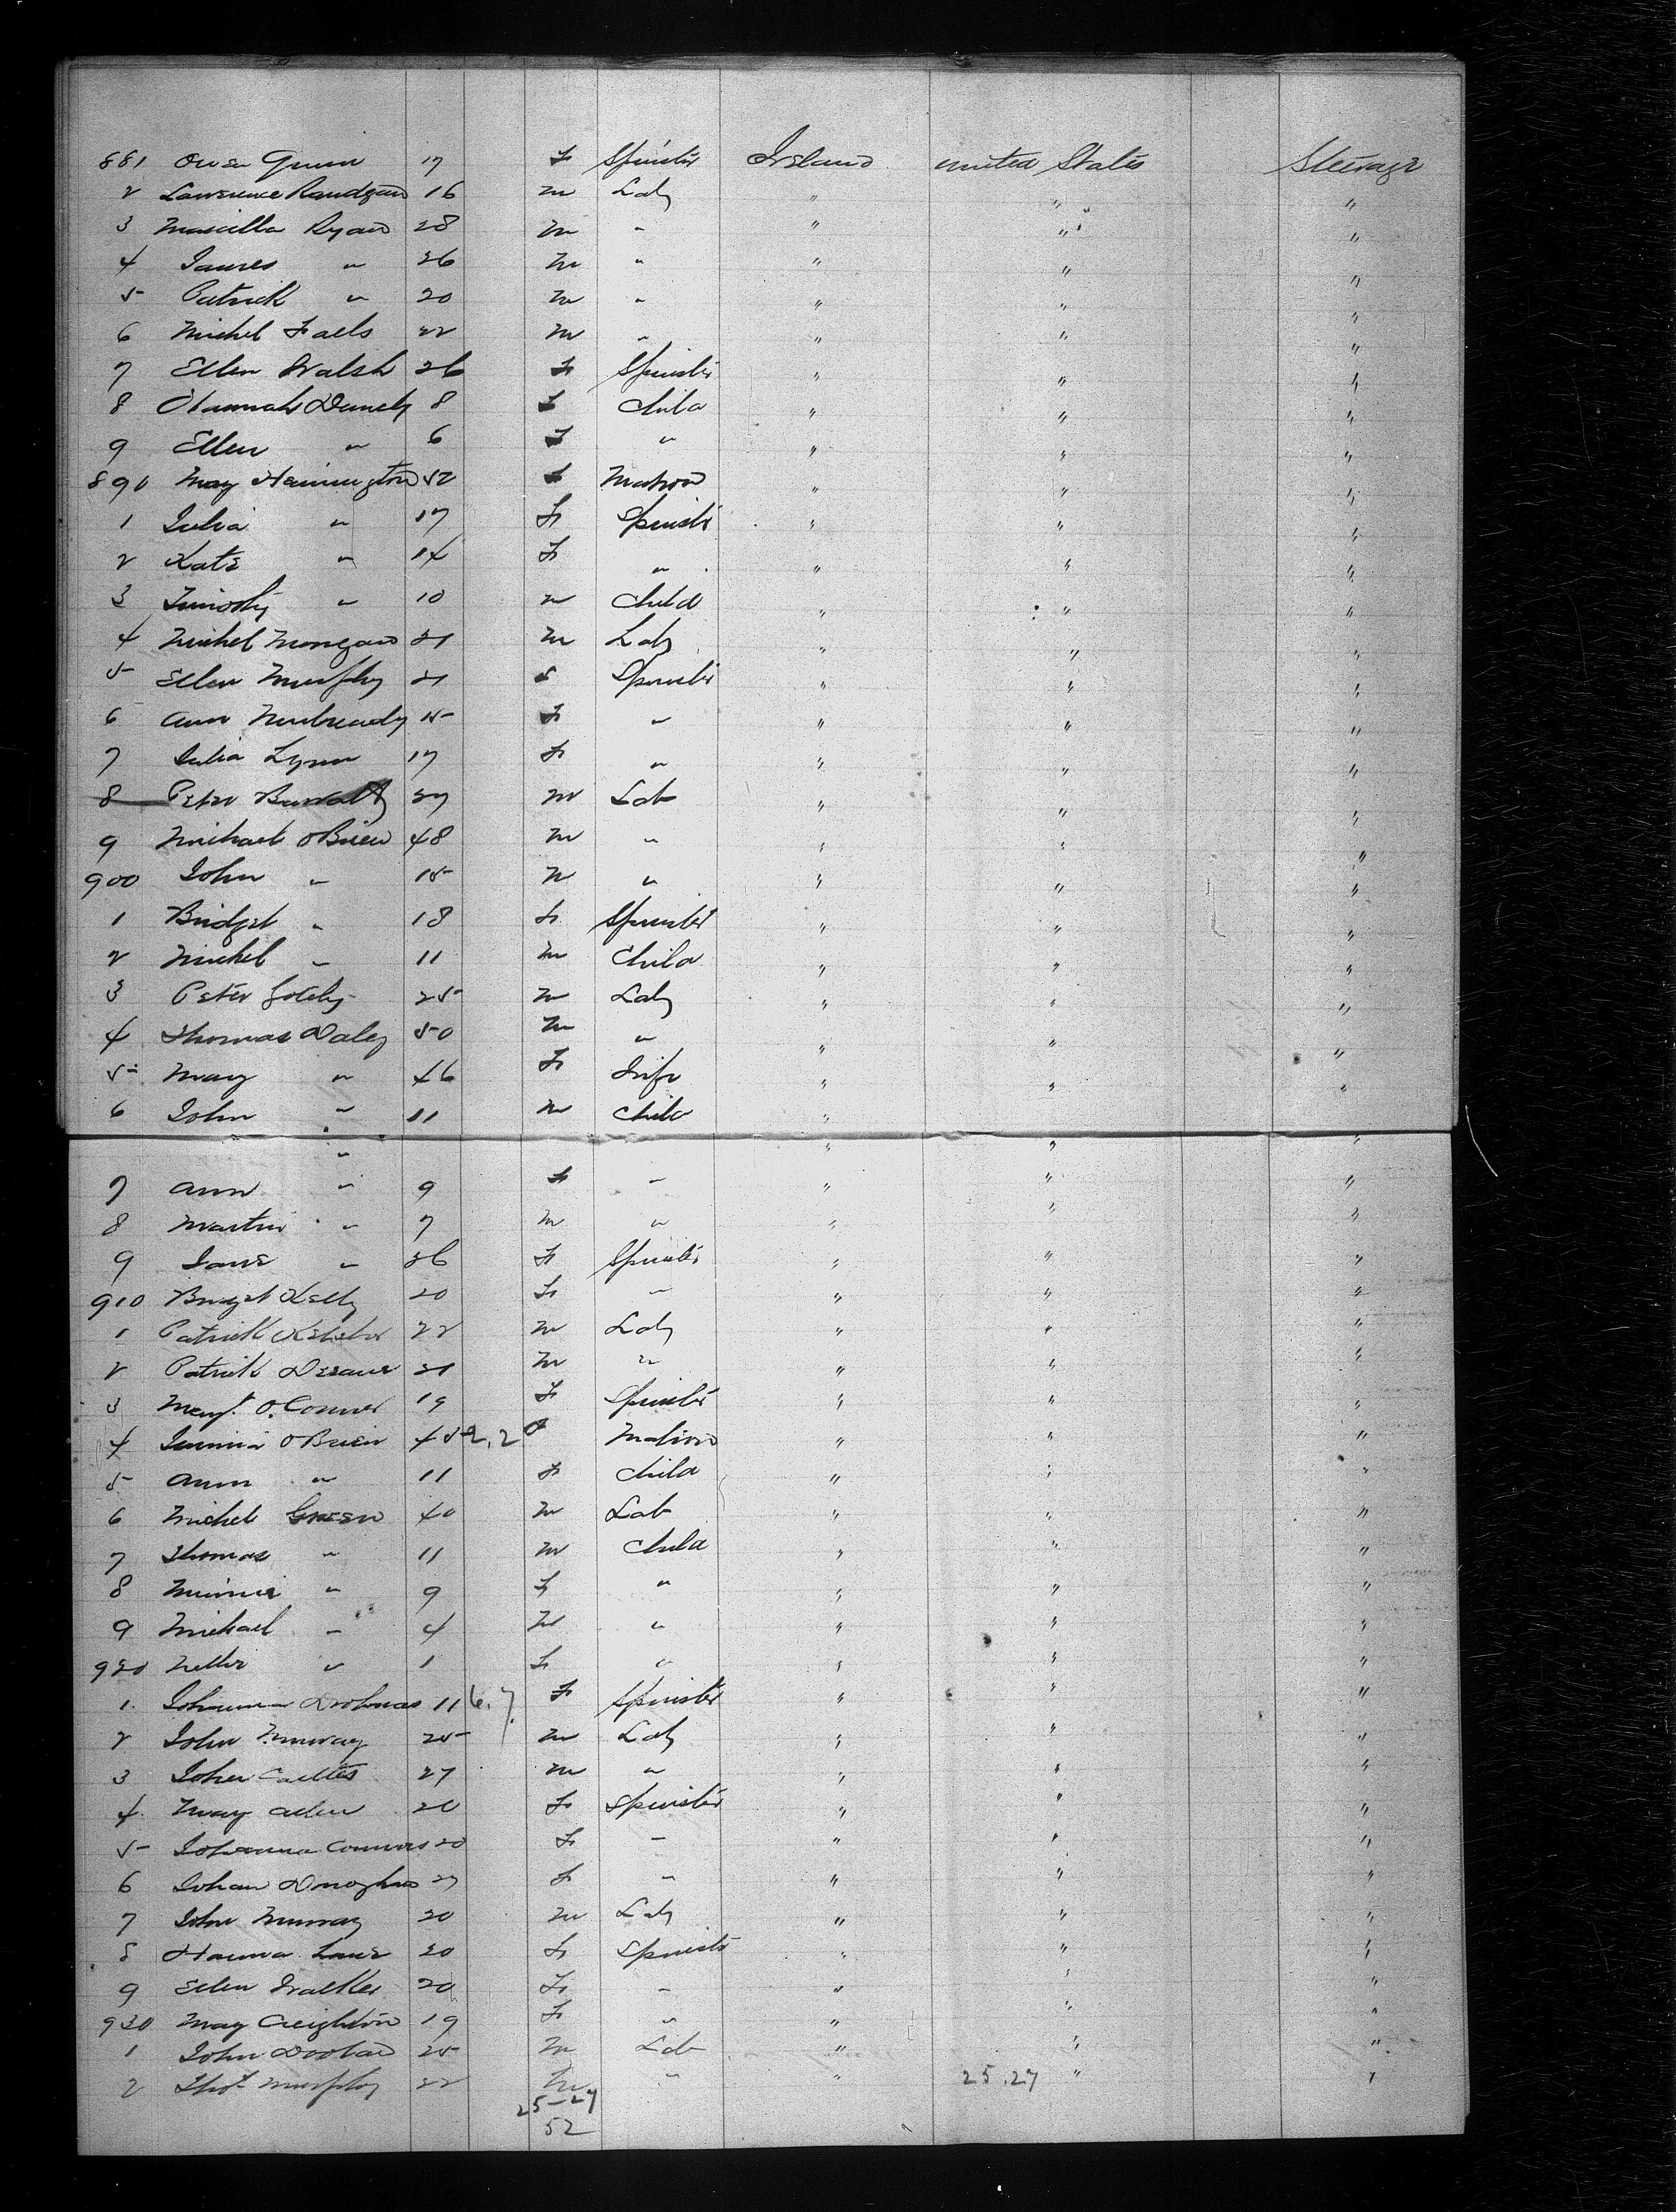 881 Owen Quinn 17 F Spinster Ireland United States Steerage
2 Lawrence 16 m Lab " " "
3 Ryan 28 m " " " "
4 James " 26 m " " " "
5 Patrick " 20 m " " " "
6 Michel Falls 22 m " " " "
7 Ellen Walsh 26 F Spinster " " "
8 Hannah 8 F Child " " "
9 Ellen " 6 F " " " "
890 May Hennington 52 F Matron " " "
1 Julia " 17 F Spinster " " "
2 Kate " 14 F " " " "
3 Timothy " 10 m Child " " "
4 Michel Mongan 21 m Lab " " "
5 Ellen Murphy 21 F Spinster " " "
6 Ann 15 F " " " "
7 Julia Lynn 17 F " " " "
8 Peter 27 m Lab " " "
9 Michael OBrien 48 m " " " "
900 John " 15 m " " " "
1 Bridget " 18 F Spinster " " "
2 Michel " 11 m Child " " "
3 Peter 25 m Lab " " "
4 Thomas Daley 50 m " " " "
5 May " 46 F Wife " " "
6 John " 11 m Child "
" " " "
7 Ann " 9 F " " " "
8 Martin " 7 m " " " "
9 Jane " 26 F Spinster " " "
910 Bridget Kelly 20 F " " " "
1 Patrick Keleher 22 m Lab " " "
2 Patrick 21 m " " " "
3 Margt. O.Connor 19 F Spinster " " "
4 OBrien 45 2.2 F Matron " " "
5 Ann " 11 F Child " " "
6 Michel Green 40 m Lab " " "
7 Thomas " 11 m Child " " "
8 Minnie " 9 F " " " "
9 Michael " 4 m " " " "
920 Nellie " 1 F " " " "
1 Johanna 11 6.7. F Spinster " " "
2 John Murray 25 m Lab " " "
3 John 27 m " " " "
4 May Allen 20 F Spinster " " "
5 Johanna Connors 20 F " " " "
6 Johan Donoghue 27 F " " " "
7 John Murray 20 m Lab " " "
8 Hanna Lane 20 F Spinster " " "
9 Ellen Walker 20 F " " " "
930 May Creighton 19 F " " " "
1 John Doolan 25 m Lab " " "
2 Thos Murphy 22 m " " 25.27 " "
25-27
52